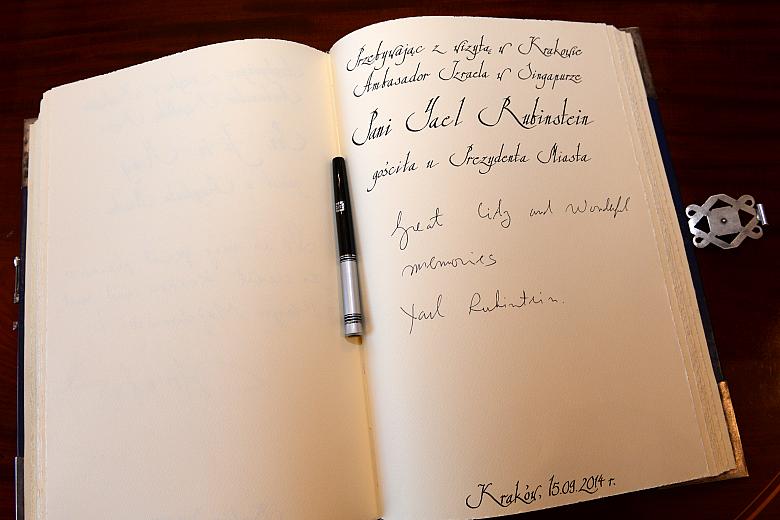 Przebywając z wizytą w Krakowie
Ambasador Izraela w Singapurze
Pani Yael Rubinstein
gościła u Prezydenta Miasta
Great City and Wonderful
memories
Yael Rubinstein.
Kraków, 15.09.2014 r.